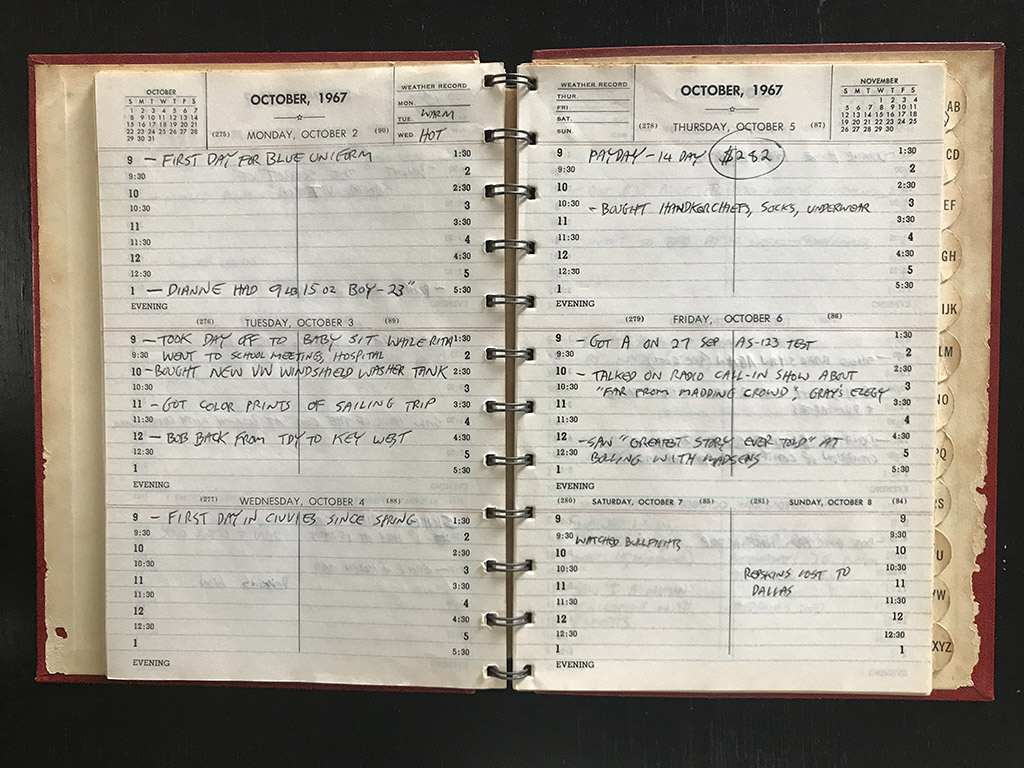 OCTOBER
S M T W T F S
1 2 3 4 5 6 7
8 9 10 11 12 13 14
15 16 17 18 19 20 21
22 23 24 25 26 27 28
29 30 31
OCTOBER, 1967
(275) MONDAY, OCTOBER 2 (90)
WEATHER RECORD
MON.
TUE. WARM
WED. HOT
9 – FIRST DAY FOR BLUE UNIFORM 1:30
9:30 2
10 2:30
10:30 3
11 3:30
11:30 4
12 4:30
12:30 5
1 – DIANNE HAD 9 LB 15 OZ BOY – 23" 5:30
EVENING
(276) TUESDAY, OCTOBER 3 (89)
9 – TOOK DAY OFF TO BABY SIT WHILE RITA 1:30
9:30 WENT TO SCHOOL MEETINGS, HOSPITAL 2
10 – BOUGHT NEW VW WINDSHIELD WASHER TANK 2:30
10:30 3
11 – GOT COLOR PRINTS OF SAILING TRIP 3:30
11:30 4
12 – BOB BACK FROM TDY TO KEY WEST 4:30
12:30 5
1 5:30
EVENING
(277) WEDNESDAY, OCTOBER 4 (88)
9 – FIRST DAY IN CIVVIES SINCE SPRING 1:30
9:30 2
10 2:30
10:30 3
11 3:30
11:30 4
12 4:30
12:30 5
1 5:30
EVENING
WEATHER RECORD
THUR.
FRI.
SAT.
SUN.
OCTOBER, 1967
(278) THURSDAY, OCTOBER 5 (87)
NOVEMBER
S M T W T F S
1 2 3 4
5 6 7 8 9 10 11
12 13 14 15 16 17 18
19 20 21 22 23 24 25
26 27 28 29 30
9 PAYDAY – 14 DAY $282 1:30
9:30 2
10 2:30
10:30 – BOUGHT HANDKERCHIEFS, SOCKS, UNDERWEAR 3
11 3:30
11:30 4
12 4:30
12:30 5
1 5:30
EVENING
(279) FRIDAY, OCTOBER 6 (86)
9 – GOT A ON 27 SEP AS-123 TEST 1:30
9:30 2
10 – TALKED ON RADIO CALL-IN SHOW ABOUT 2:30
10:30 "FAR FROM MADDING CROWD", GRAY'S ELEGY 3
11 3:30
11:30 4
12 – SAW "GREATEST STORY EVER TOLD" AT 4:30
12:30 BOLLING WITH MADSENS 5
1 5:30
EVENING
(280) SATURDAY, OCTOBER 7 (85) (281) SUNDAY, OCTOBER 8 (84)
9 9
9:30 WATCHED BULLFIGHTS 9:30
10 10
10:30 REDSKINS LOST TO 10:30
11 DALLAS 11
11:30 11:30
12 12
12:30 12:30
1 1
EVENING
AB
CD
EF
GH
IJK
LM
NO
PQ
RS
YW
XYZ